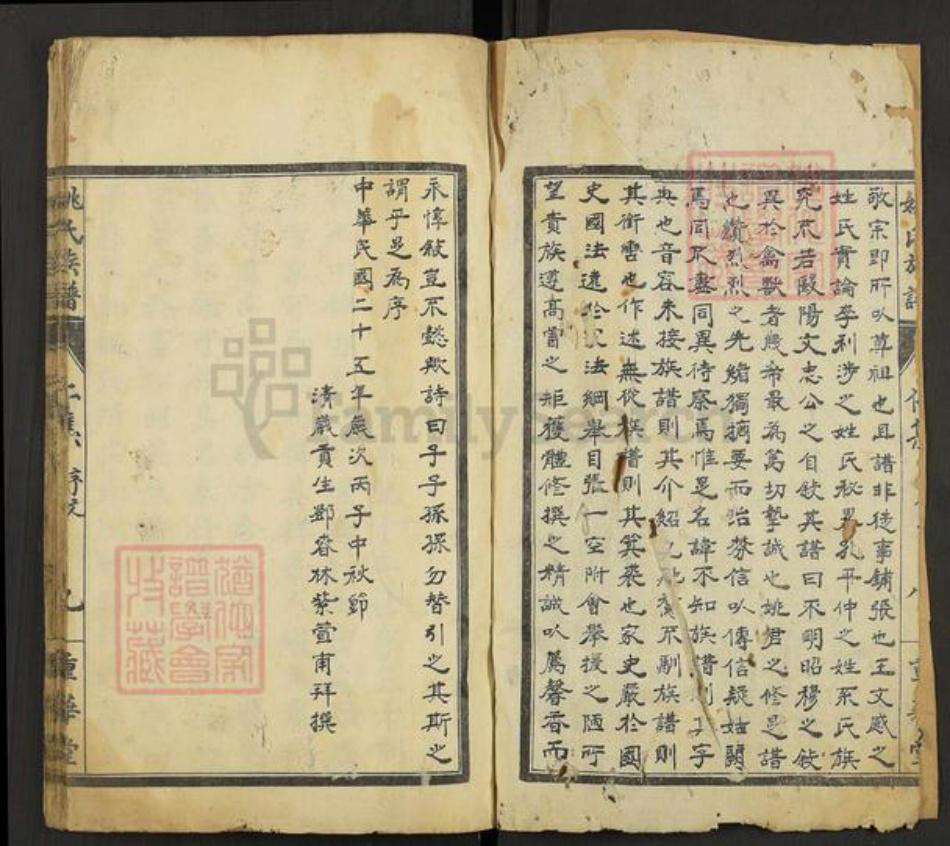 敬宗即所以尊祖也且譜非徒事鋪張也王文感之
姓氏實論李利涉之姓氏秘畧孔平仲之姓系氏族
究不若歐陽文忠公之自敘其譜曰不明昭穆之敘
異於禽獸者幾希最為篤切摯誠也姚君之修是譜
也纘烈烈之先緒獨摘要而治棼信以傳信疑姑闕
焉同不盡同異待察焉惟是名諱不知族譜則其字
典也音容未接族譜則其介紹也 不副族譜則
其銜雪也作述無從族譜則其箕裘也家史嚴於國
史國法遠於家法綱舉目張一空附會攀援之陋所
望貴族遵高曾之矩矱體修撰之精誠以薦馨香而
永惇敘豈不懿歟詩曰子子孫孫勿替引之其斯之
謂乎是為序
中華民國二十五年歲次丙子中秋節
清歲貢生鄧春林紫萱甫拜撰
姚氏族譜
序文
九
重華堂
猶他家譜學會收藏
FamilySearch